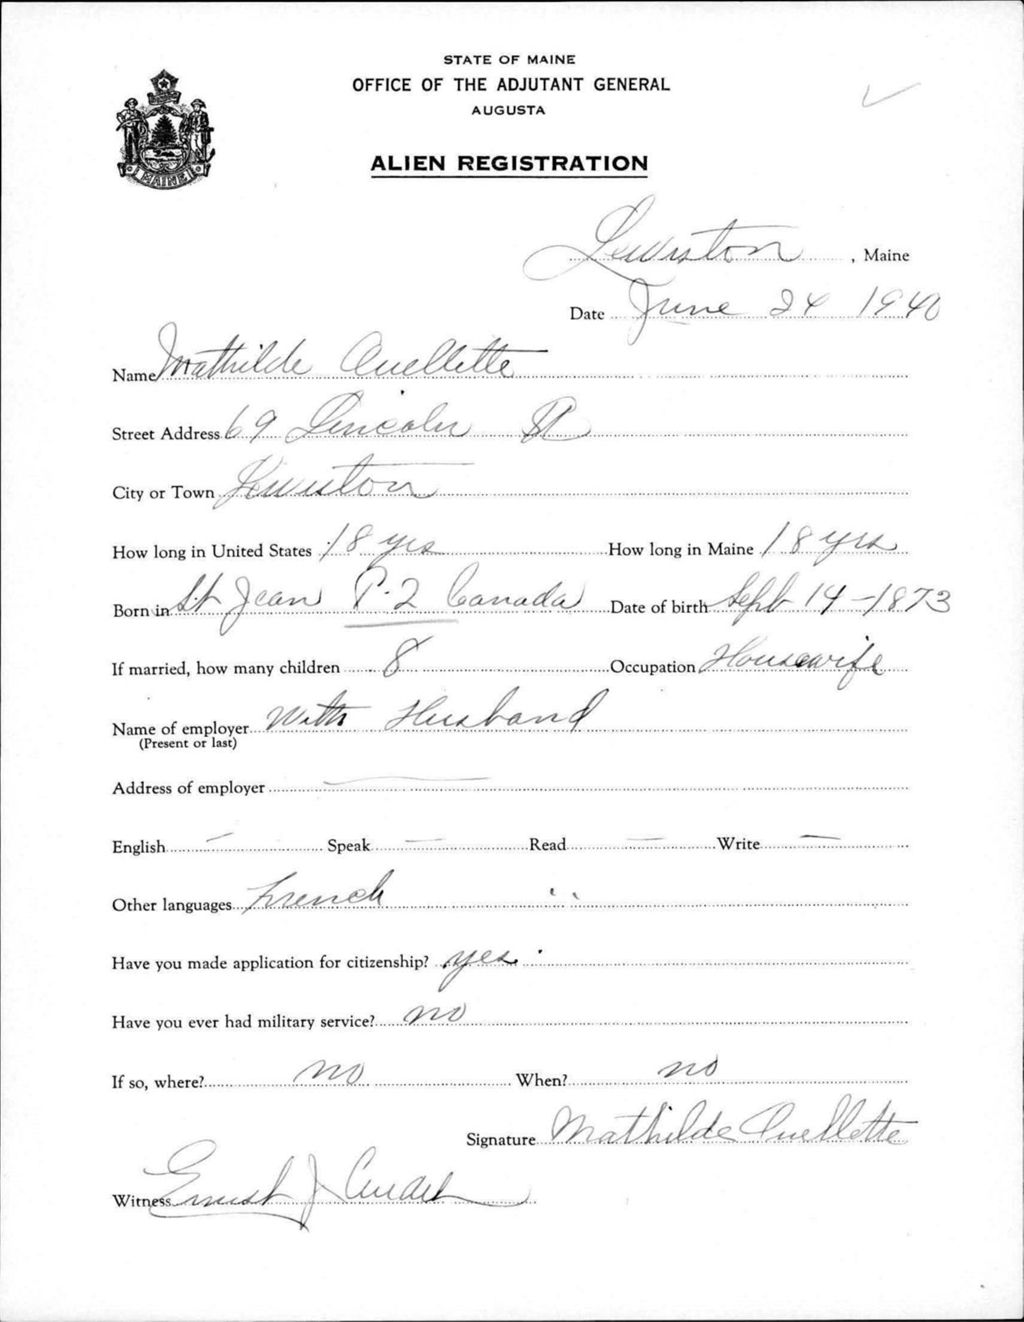 STATE OF MAINE
OFFICE OF THE ADJUTANT GENERAL
AUGUSTA
ALIEN REGISTRATION
MAINE
Lewiston, Maine
Date June 24 1940
Name Mathilde Ouellette
Street Address 69 Lincoln St
City or Town Lewiston
How long in United States 18 yrs How long in Maine 18 yrs
Born in St Jean P.2 Canada Date of birth Sept 14-1873
If married, how many children 8 Occupation Housewife
Name of employer With Husband
(Present or last)
Address of employer —
English — Speak — Read — Write —
Other languages French
Have you made application for citizenship? yes
Have you ever had military service? no
If so, where? no When? no
Signature Mathilde Ouellette
Witness Ernest J Audet